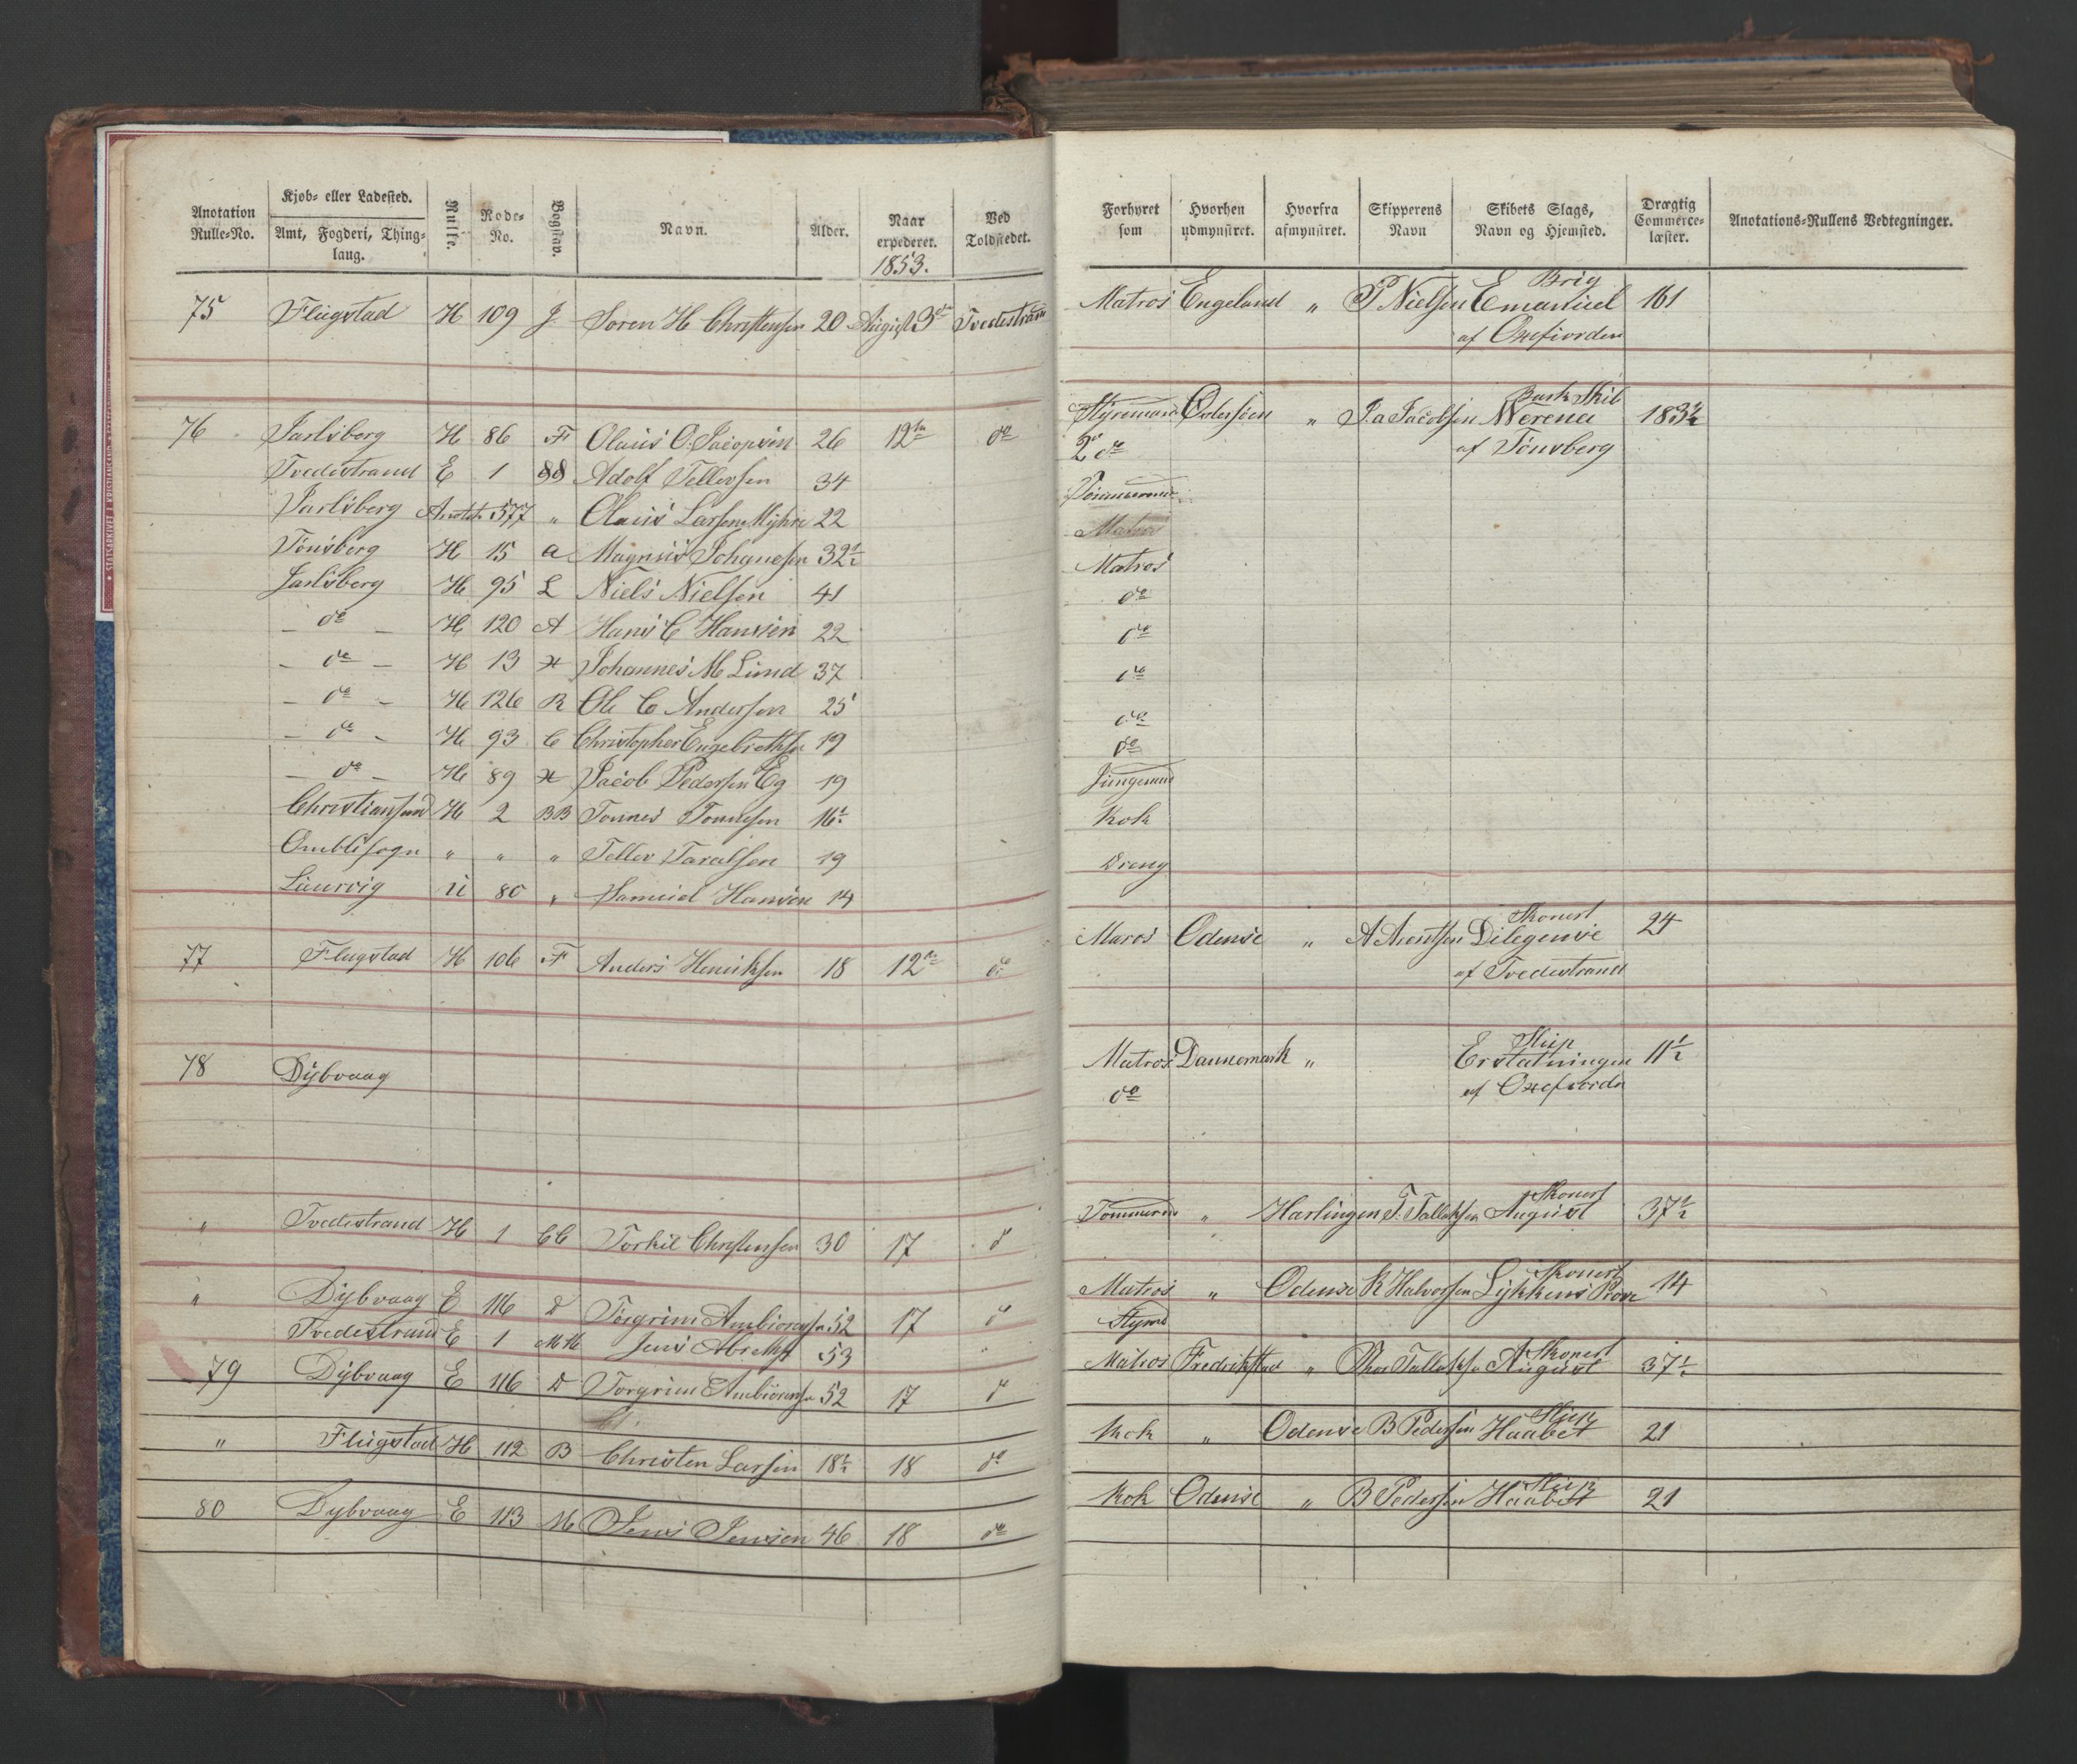 Anotation Rulle-No. Kjøb- eller Ladested. Amt, Fogderi, Thinglaug. Rulle. Rode-No. Bogstav. Navn. Alder. Naar expederet. 1853. Ved Toldstedet.
75 Flugstad H 109 J Soren H Christensen 20 August 3de Tvedestrand
76 Jarlsberg H 86 F Olaus O. Jacopsen 26 12te do
Tvedestrand E 1 88 Adolf Tellevsen 34
Jarlsberg 577 " Olaus Larsen Myhre 22
Tönsberg H 15 a Magnus Johanesen 32½
Jarlsberg H 95 L Niels Nielsen 41
— do — H 120 A Hans C Hansen 22
— do — H 13 Johannes M Lund 37
— do — H 126 R Ole C Andersen 25
— do — H 93 C Christopher Engebrethsen 19
— do — H 89 Jacob Pedersen Eg 19
Christiansand H 2 BB Tonnes Tonnesen 16½
Omblisogn " " " Tellev Taralsen 19
Laurvig U 80 " Samuel Hansen 14
77 Flugstad H 106 F Anders Henriksen 18 12te do
78 Dÿbvaag
" Tvedestrand H 1 CC Torkil Christensen 30 17 do
" Dÿbvaag E 116 D Torgrim 52 17 do
Tvedestrand E 1 MM Jens 53 "
79 Dÿbvaag E 116 D Torgrim 52 17 do
" Flugstad H 112 B Christen Larsen 18½ 18 do
80 Dybvaag E 113 M Jens Jensen 46 18 do
Forhyret som Hvorhen udmynstret. Hvorfra afmynstret. Skipperens Navn Skibets Slags, Navn og Hjemsted. Drægtig Commerce-læster. Anotations-Rullens Vedtegninger.
Brig
Matros Engeland " P Nielsen Emanuel 161
af Oxefiorden
Bark Skib
Styrmand " J. a Jacobsen Werena 183½
2 do af Tönsberg
Tömmermand
Matros
Matros
do
do
do
do
do
Jungmand
Kok
Dreng
Skonert
Maros Odense " A Arentsen Dilegense 24
af Tvedestrand
Slup
Matros Dannemark " Erstatningen 11½
do af Oxefiorden
Skonert
Tömmermd " Harlingen T. Tallaksen August 37½
Skonert
Matros " Odense K Halvorsen Lÿkkens Prøve 14
Styrmd
Skonert
Matros Fredrikstad " Tallaksen August 37½
Slup
Kok " Odense B Pedersen Haabet 21
Slup
Kok Odense " B Pedersen Haabet 21